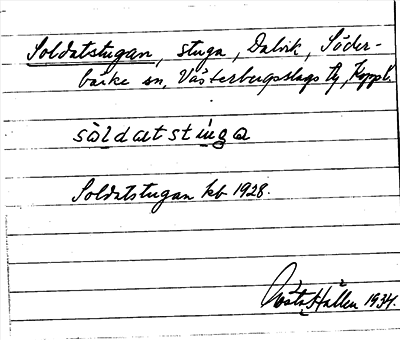 Soldatstugan, stuga, Dalvik, Söder-
bärke sn, Västerbergslags tg, Koppb.
sòldatstúga
Soldatstugan kb 1928.
Gösta Hallen 1934.